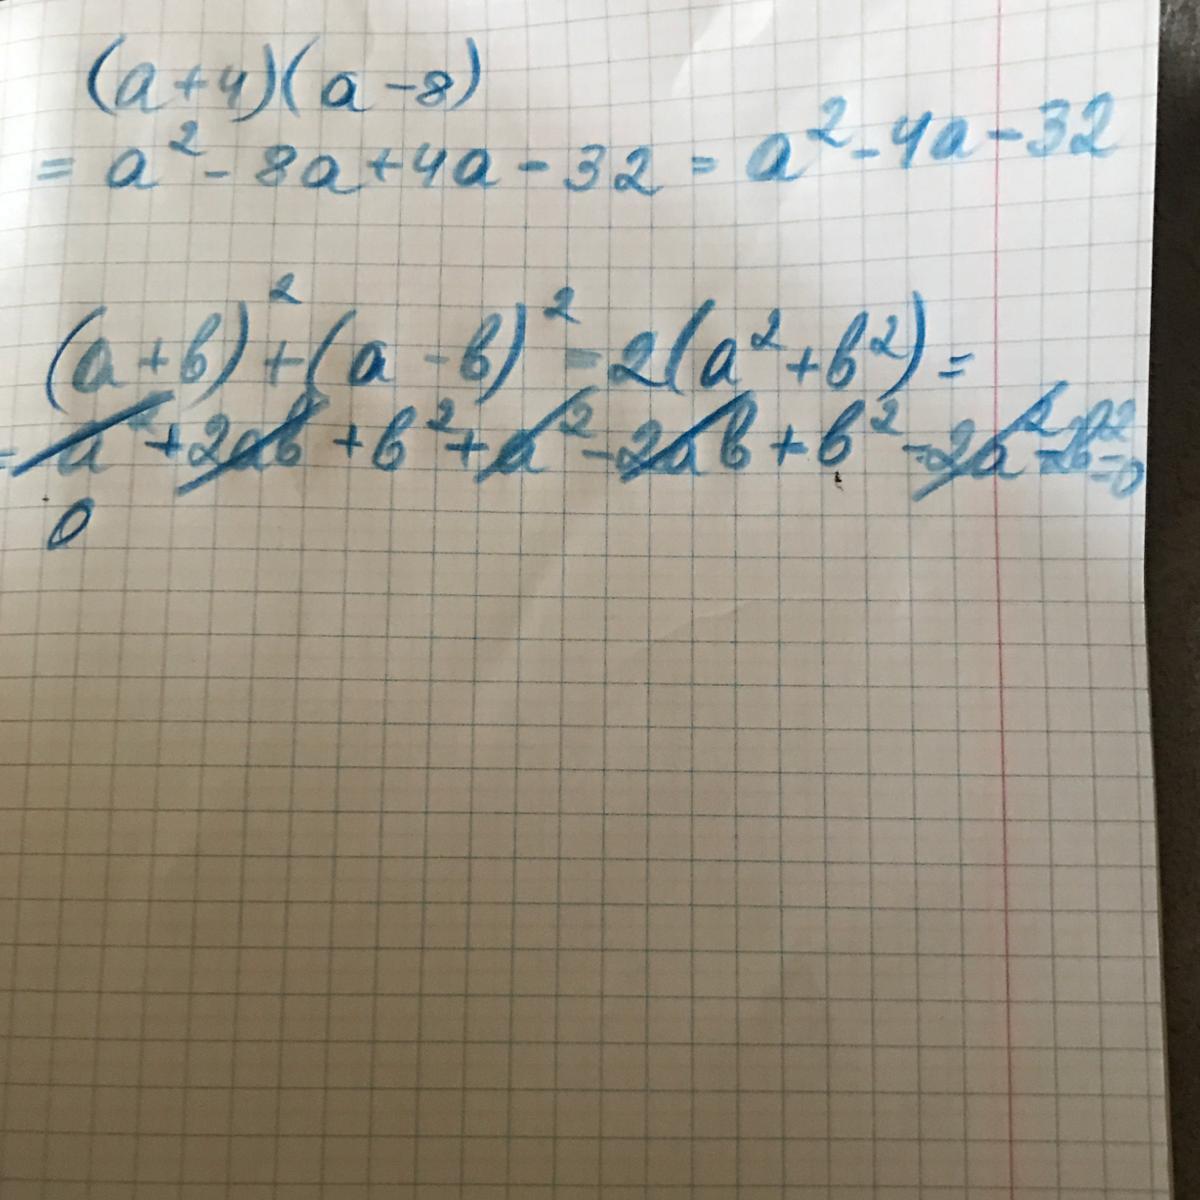 (a+4)(a-8)
= a² - 8a + 4a - 32 = a² - 4a - 32
(a+b)² + (a-b)² - 2(a²+b²) =
= a² + 2ab + b² + a² - 2ab + b² - 2a² - 2b² = 0
0